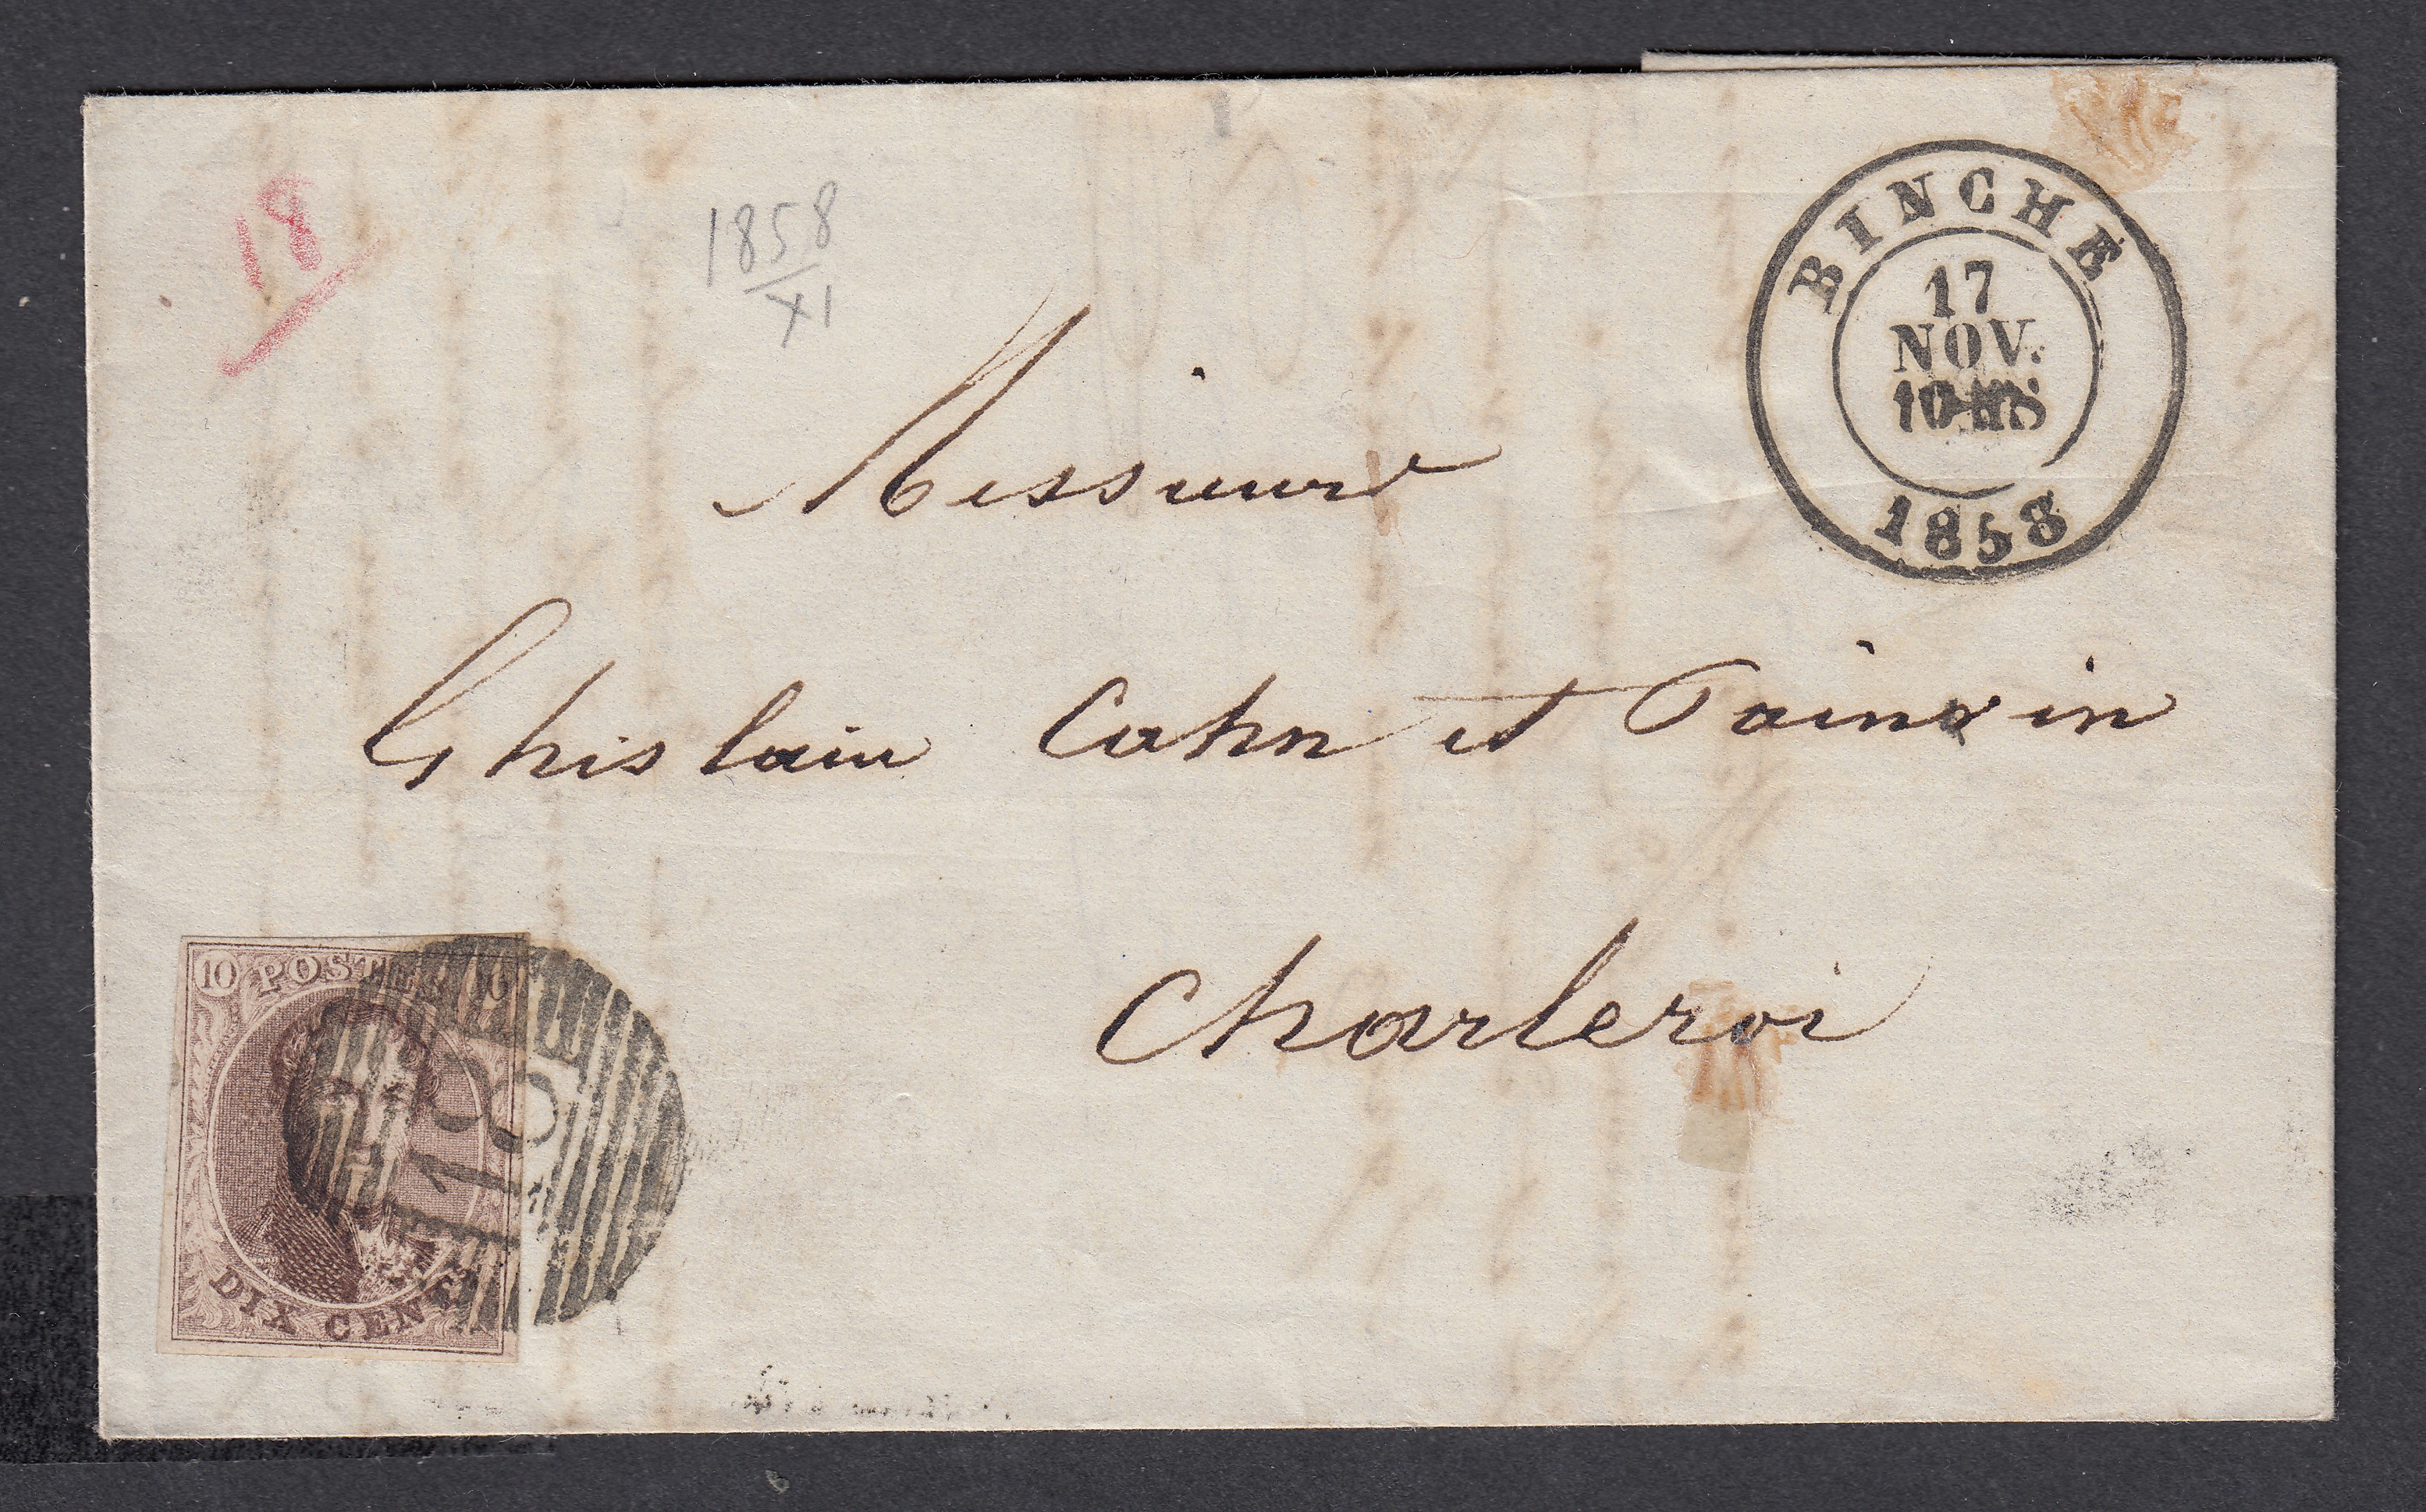 18
1858
XI
BINCHE
17
NOV.
1858
Messieurs
Ghislain Cahn et Tainvin
Charleroi
10 POSTES 10
18
DIX CENT